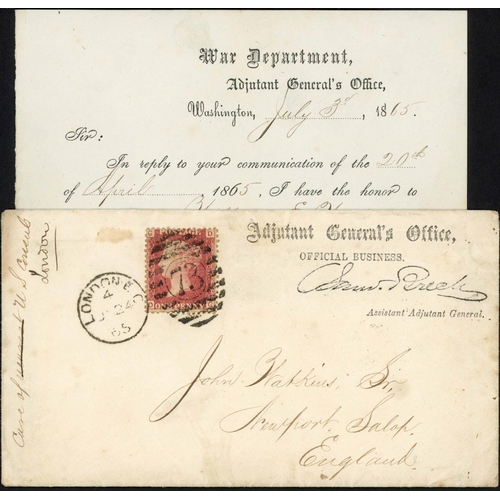 War Department,
Adjutant General's Office,
Washington, July 3rd, 1865.
Sir:
In reply to your communication of the 20th
of April 1865, I have the honor to
Adjutant General's Office,
OFFICIAL BUSINESS.
Assistant Adjutant General.
LONDON E
4
24
65
73
John Watkins, Sr.
Newport, Salop.
England.
Care of U S Consul
London